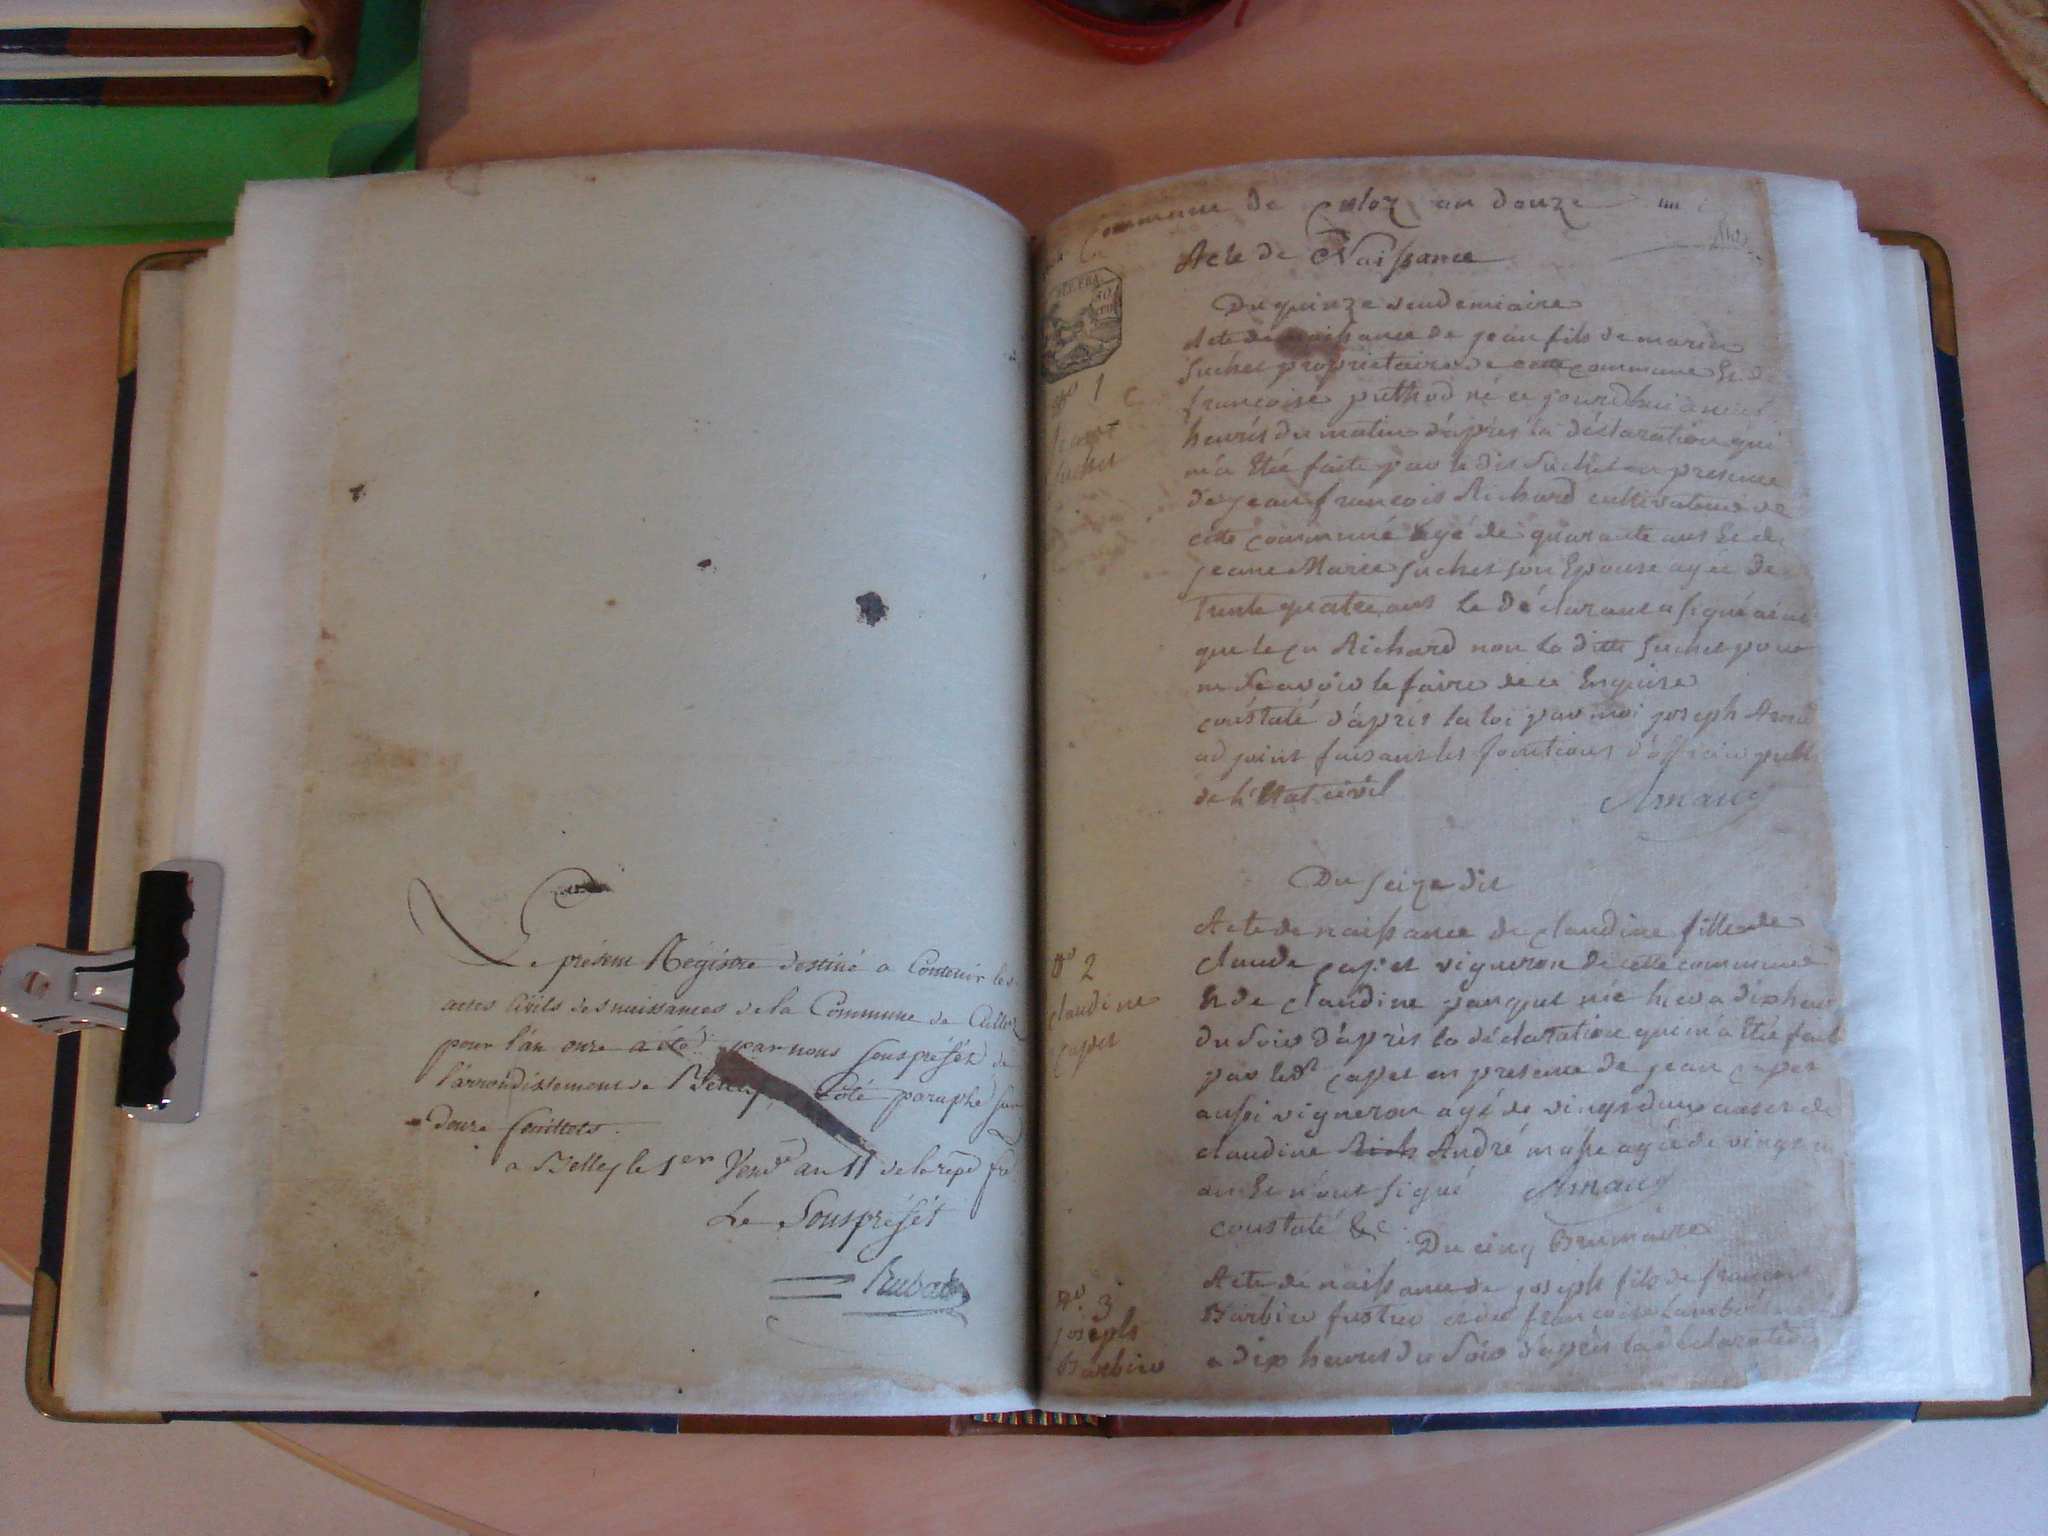 Le présent Régistre destiné a Contenir les
actes Civils des naissances de la Commune de Culloz
pour l'an onze a été par nous sous préfét de
l'arrondissement de Belley Coté paraphé sur
Douze feuillets.
a Belley le 1er Vend.re an 11 de la rép fr
Le Souspréfét
Rubat
Commune de Culoz an douze
Acte de Naissance
Du quinze vendemiaire
Acte de naissance de jean fils de marin
Suchet propriétaire de cette commune Et de
françoise puthod né ce jourdhui a neuf
heures du matin d'apres la déclaration qui
m'a Etée faite par le dit Suchet en presence
de jean françois Richard cultivateur de
cette commune agé de quarante ans Et de
jeane Marie Suchet son Epouse agée de
Trente quatre ans Le Déclarant a signé ainsi
que le Richard non La ditte Suchet pour
ne Savoir le faire de ce Enquise
constaté d'après la loi par moi joseph
adjoint faisant les fonctions d'officier publ
de l'Etat civil
N.o 1
Suchet
Du seize dit
Acte de naissance de claudine fille de
claude capet vigneron de cette commune
Et de claudine panquet née hier a dix heures
du Soir d'après la déclaration qui m'a Etée faite
par led.t capet en presence de jean capet
aussi vigneron agé de vingt deux ans et de
claudine Rich André masse agée de vingt
ans Et n'ont signé
constaté &c.
N.o 2
claudine
capet
Du cinq Brumaire
Acte de naissance de joseph fils de francois
Barbier et de francoise Lambert
a dix heures du Soir d'après la déclaration
N.o 3
joseph
Barbier